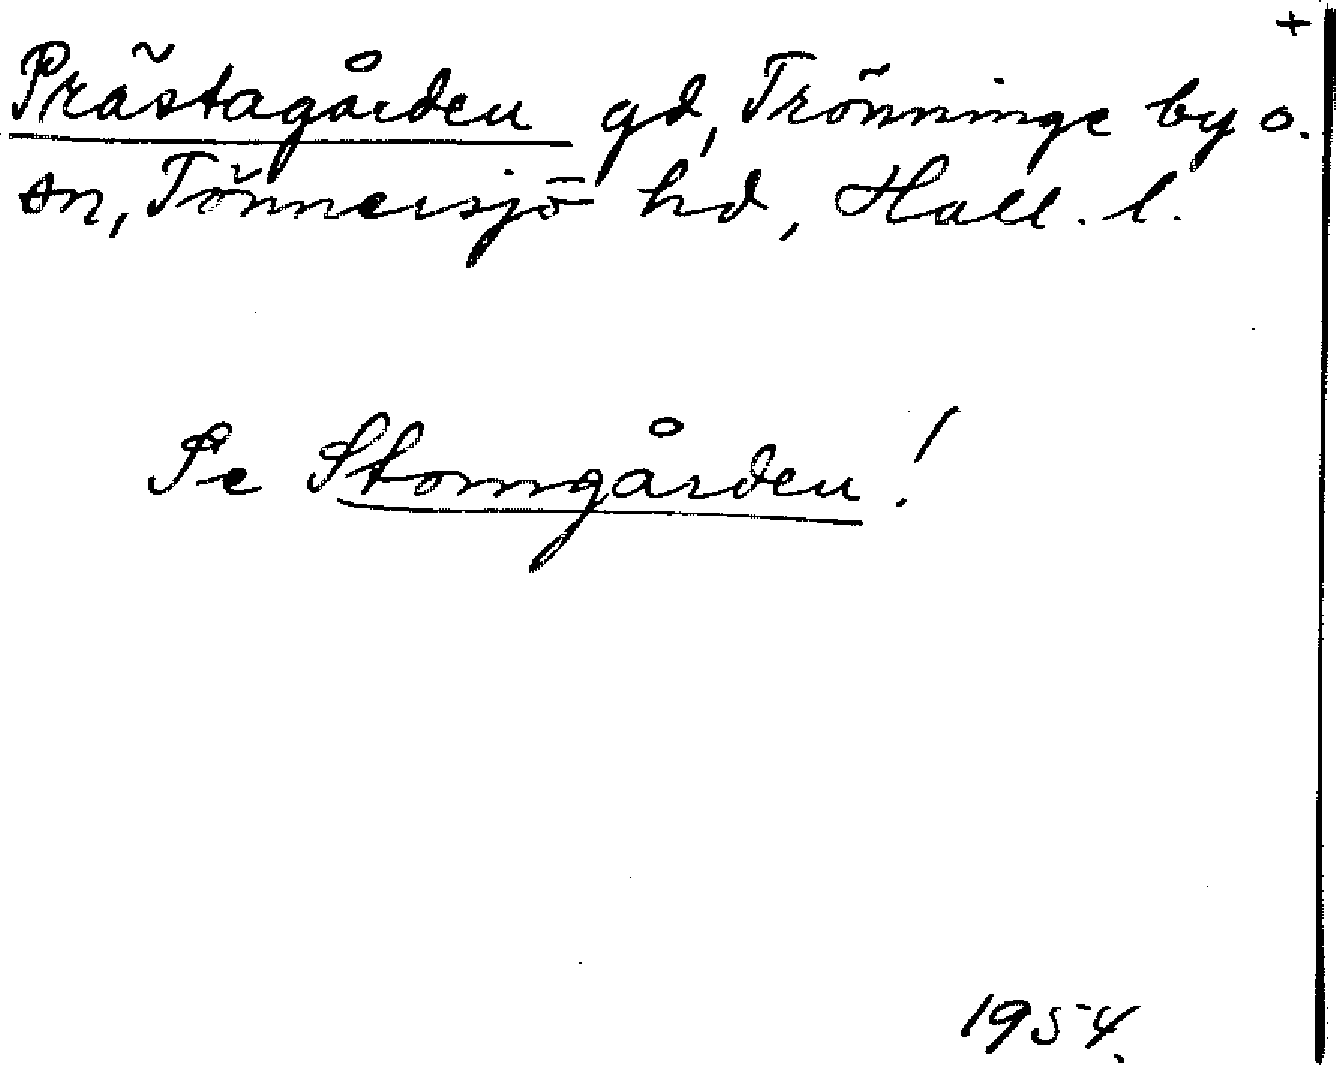 +
Prästagården gd, Trönninge by o.
sn, Tönnersjö hd, Hall. l.
Se Stomgården!
1954.